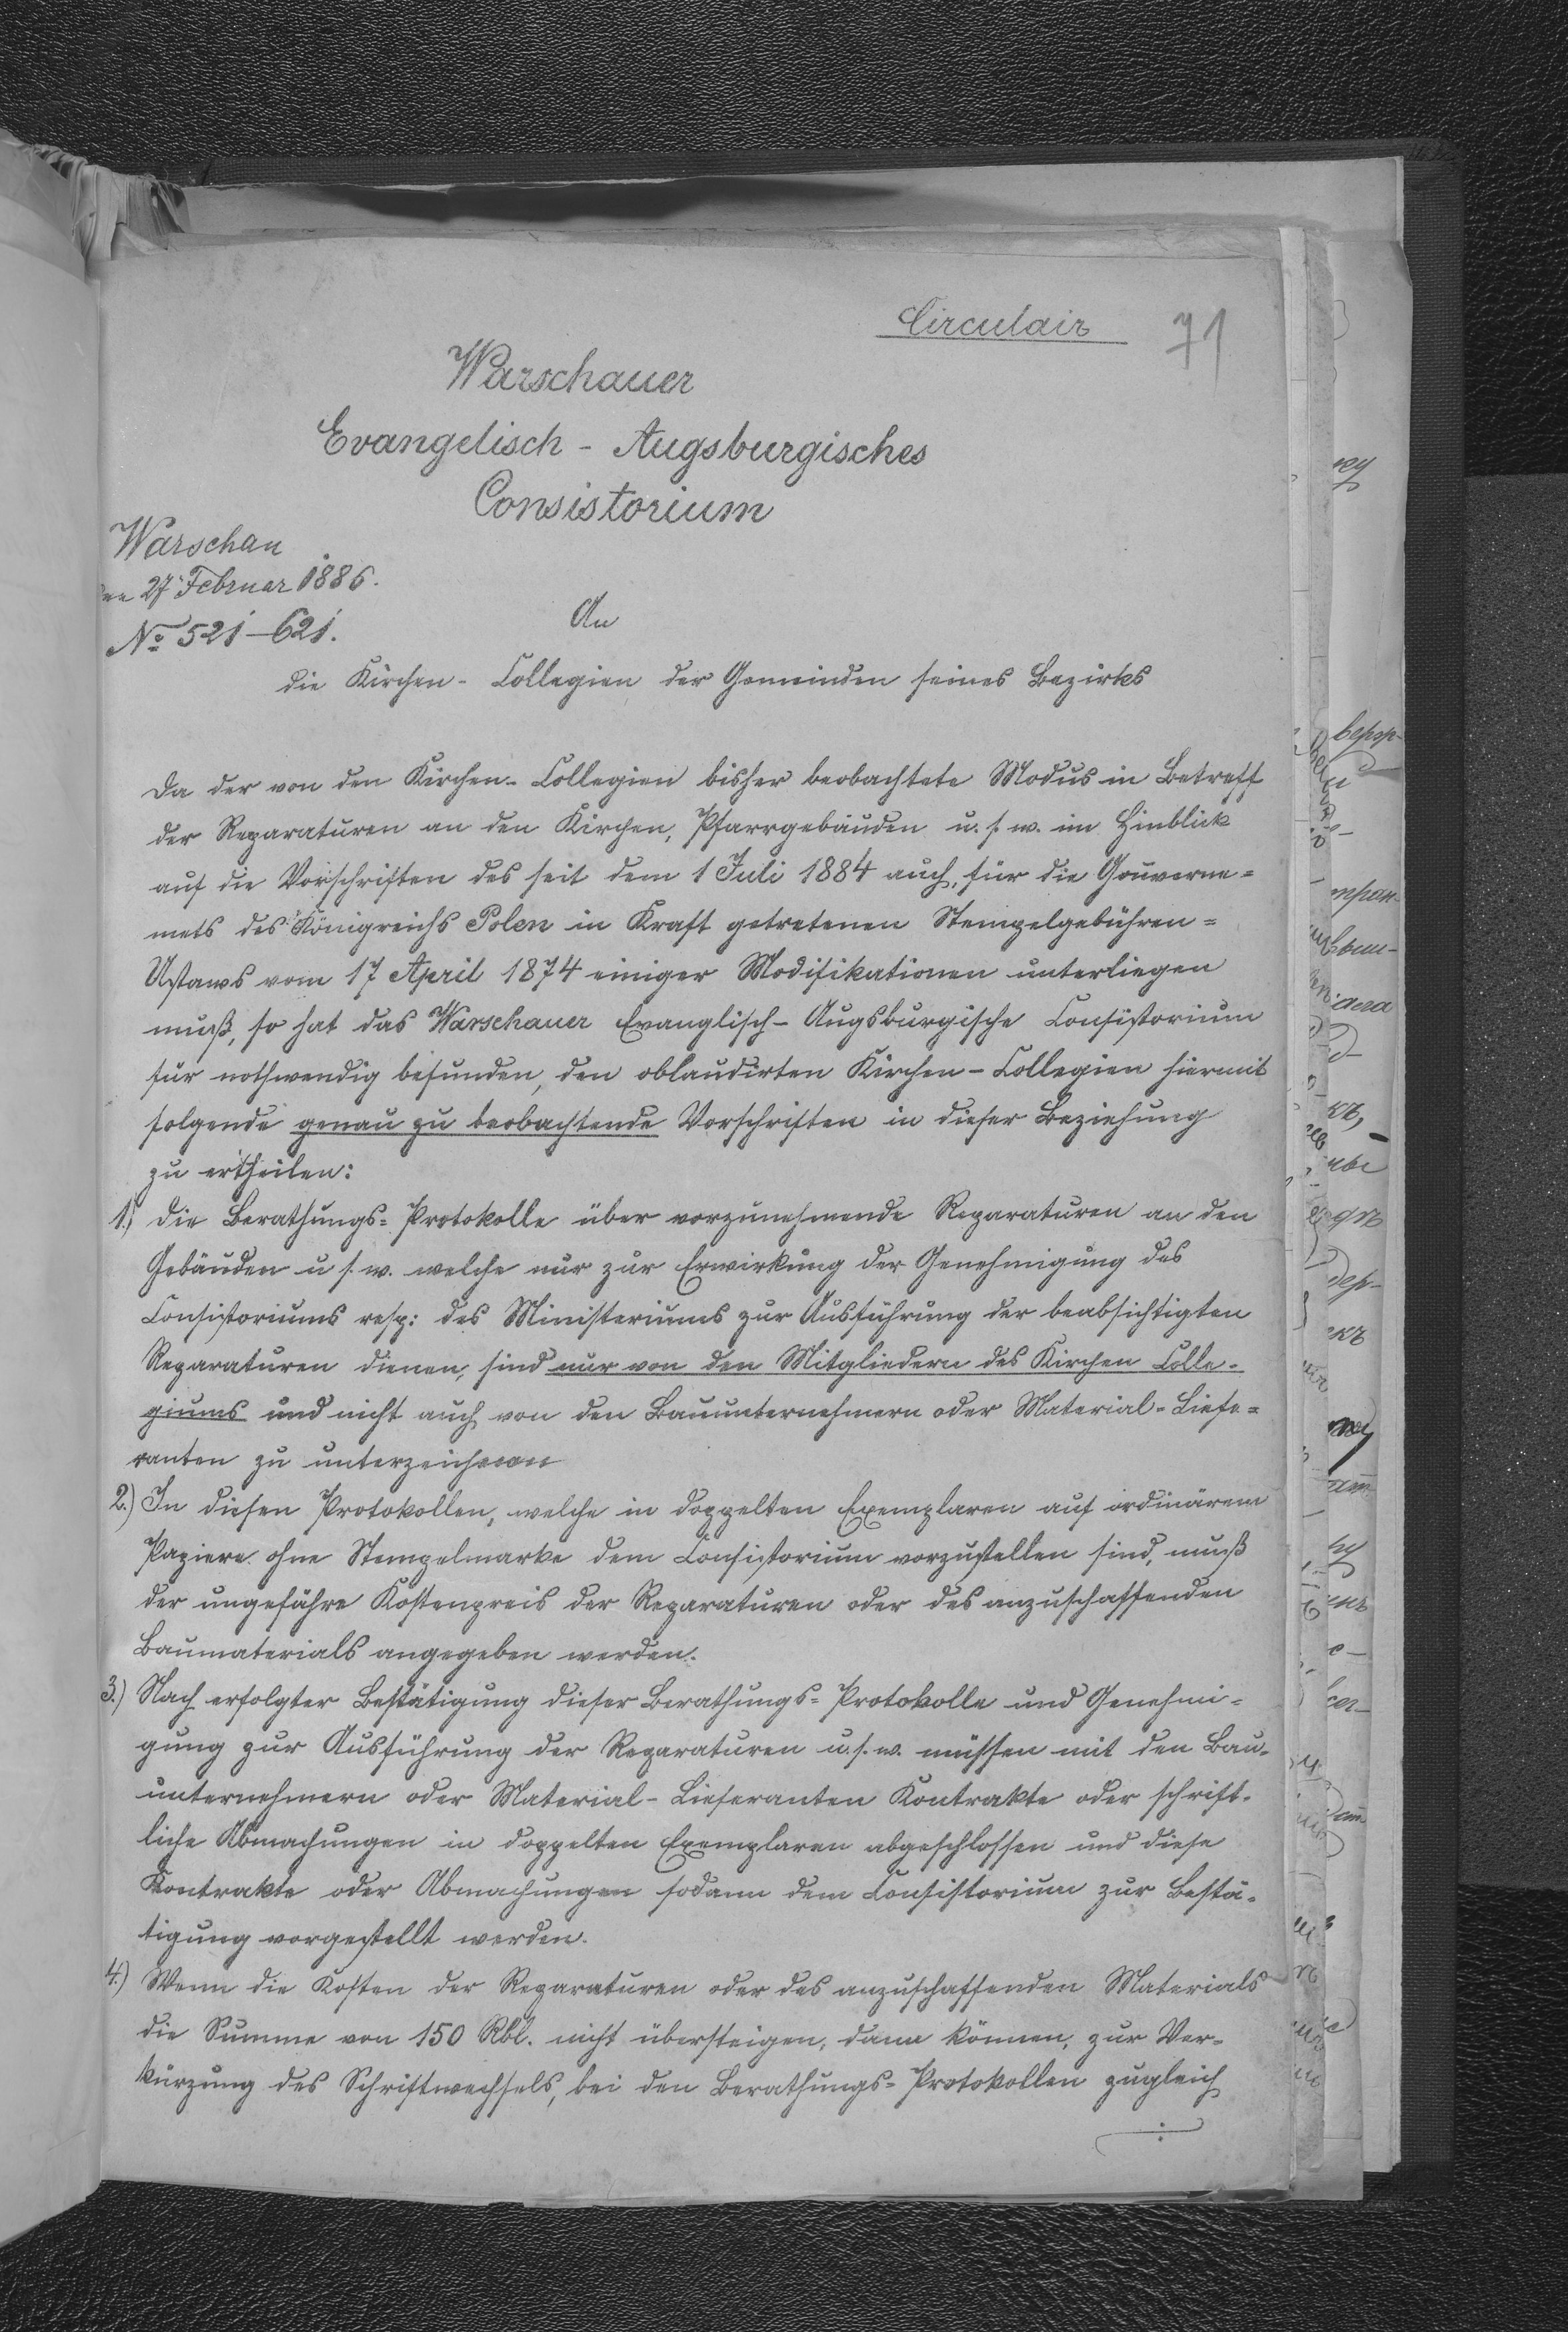 Circulair
71
Warschauer
Evangelisch - Augsburgisches
Consistorium
Warschau
den 27 Februar 1886.
No 521-621.
An
die Kirchen-Collegien der Gemeinden seines Bezirks
Da der von den Kirchen-Collegien bisher beobachtete Modus in Betreff
der Reparaturen an den Kirchen, Pfarrgebäuden u. s. w. im Hinblick
auf die Vorschriften des seit dem 1 Juli 1884 auch, für die Gouverne=
mets des Königreichs Polen in Kraft getretenen Stempelgebühren=
Ustaws vom 17 April 1874 einiger Modifikationen unterliegen
muß, so hat das Warschauer Evanglisch-Augsburgische Consistorium
für nothwendig befunden, den oblaudirten Kirchen-Collegien hiermit
folgende genau zu beobachtende Vorschriften in dieser Beziehung
zu ertheilen:
1.) Die Berathungs=Protokolle über vorzunehmende Reparaturen an den
Gebäuden u s. w. welche nur zur Erwirkung der Genehmigung des
Consistoriums resp: des Ministeriums zur Ausführung der beabsichtigten
Reparaturen dienen, sind nur von den Mitgliedern des Kirchen Colle-
giums und nicht auch von den Bauunternehmern oder Material=Liefe=
ranten zu unterzeichnen
2.) In diesen Protokollen, welche in doppelten Exemplaren auf ordinärem
Papiere ohne Stempelmarke dem Consistorium vorzustellen sind, muß
der ungefähre Kostenpreis der Reparaturen oder des anzuschaffenden
Baumaterials angegeben werden.
3.) Nach erfolgter Bestätigung dieser Berathungs=Protokolle und Genehmi-
gung zur Ausführung der Reparaturen u. s. w. müssen mit den Bau-
unternehmern oder Material-Lieferanten Kontrakte oder schrift-
liche Abmachungen in doppelten Exemplaren abgeschlossen und diese
Kontrakte oder Abmachungen sodann dem Consistorium zur Bestä-
tigung vorgestellt werden.
4.) Wenn die Kosten der Reparaturen oder des anzuschaffenden Materials
die Summe von 150 Rbl. nicht übersteigen, dann können, zur Ver-
kürzung des Schriftwechsels, bei den Berathungs=Protokollen zugleich